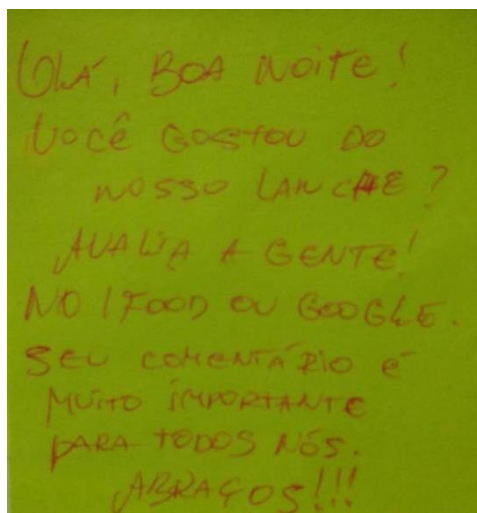 OLÁ, BOA NOITE!
VOCÊ GOSTOU DO
NOSSO LANCHE?
AVALIA A GENTE!
NO IFOOD OU GOOGLE.
SEU COMENTÁRIO É
MUITO IMPORTANTE
PARA TODOS NÓS.
ABRAÇOS!!!